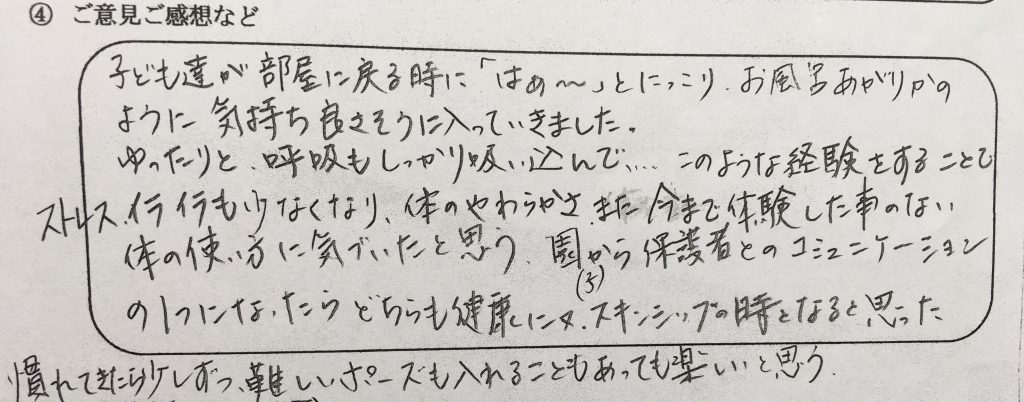 ④ ご意見ご感想など
子ども達が部屋に戻る時に「はぁ〜」とにっこり、お風呂あがりかの
ように気持ち良さそうに入っていきました。
ゆったりと、呼吸もしっかり吸い込んで…、このような経験をすることで
ストレス、イライラも少なくなり、体のやわらかさ、また今まで体験した事のない
体の使い方に気づいたと思う、園から保護者とのコミュニケーション
の1つになったらどちらも健康に、スキンシップの時となると思った
慣れてきたら少しずつ、難しいポーズも入れることもあっても楽しいと思う。